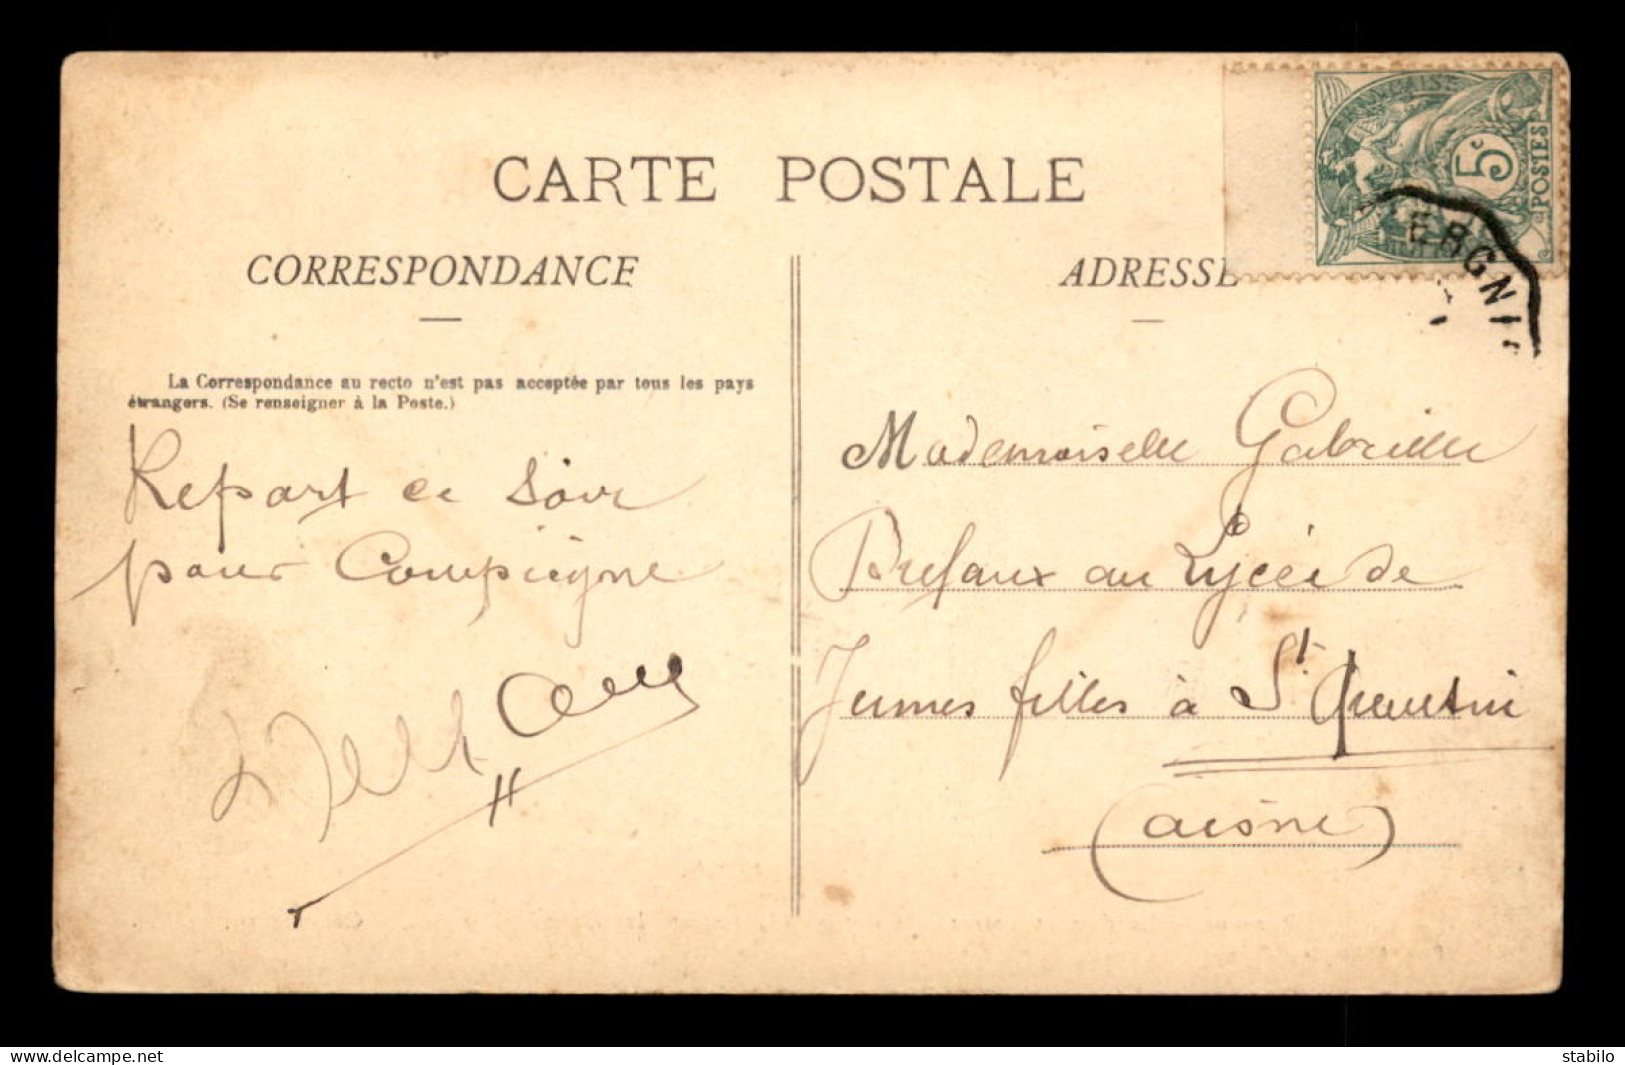 CARTE POSTALE
CORRESPONDANCE
La Correspondance au recto n'est pas acceptée par tous les pays
étrangers. (Se renseigner à la Poste.)
Repart ce soir
pour Compiègne
ADRESSE
FRANÇAISE
5c
POSTES
ERGNI
Mademoiselle Gabrielle
au Lycée de
Jeunes filles à St Quentin
(aisne)
www.delcampe.net
stabilo